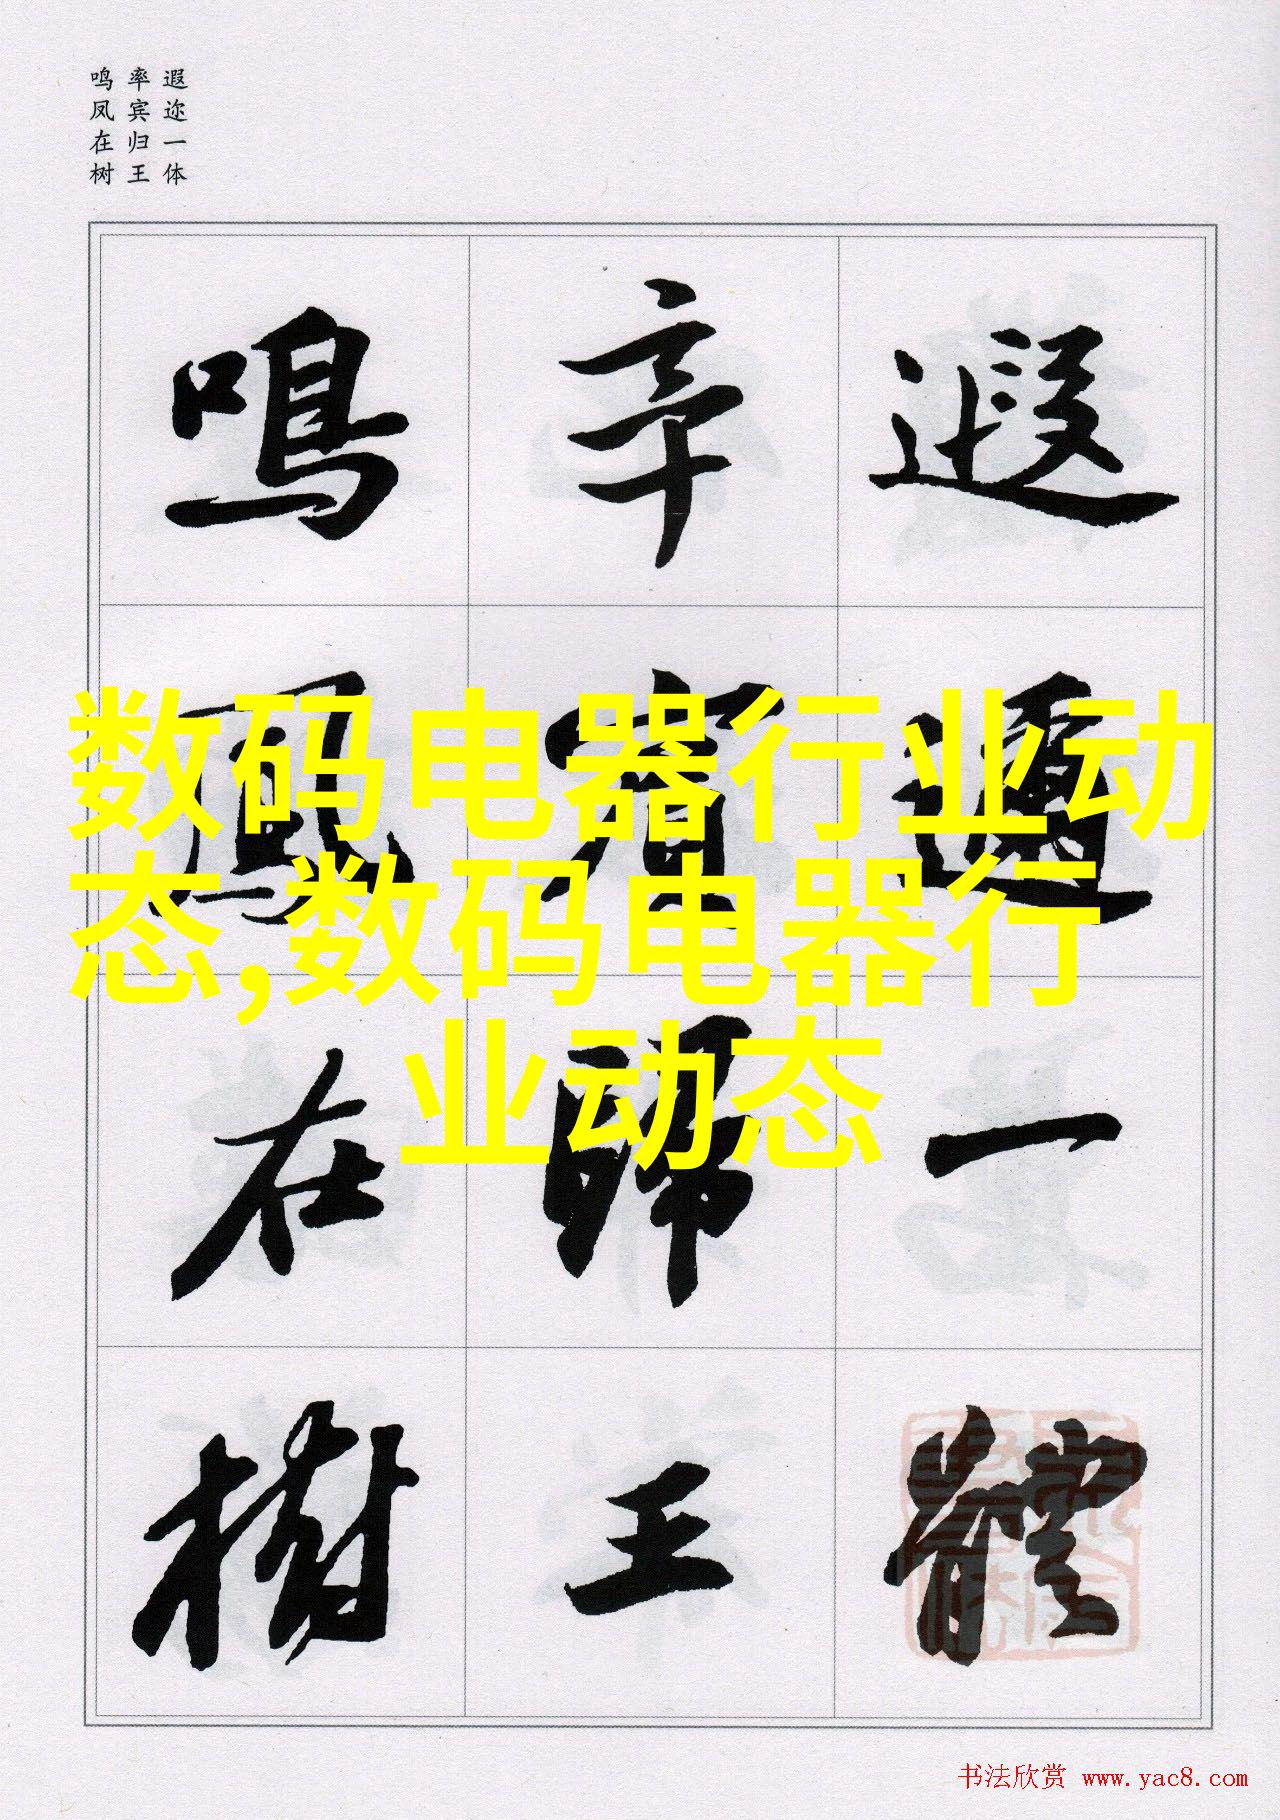 遐迩一体
率宾归王
鸣凤在树
遐邇一體
率賓歸王
鳴鳳在樹
数码电器行业动
态,数码电器行
业动态
书法欣赏 www.yac8.com